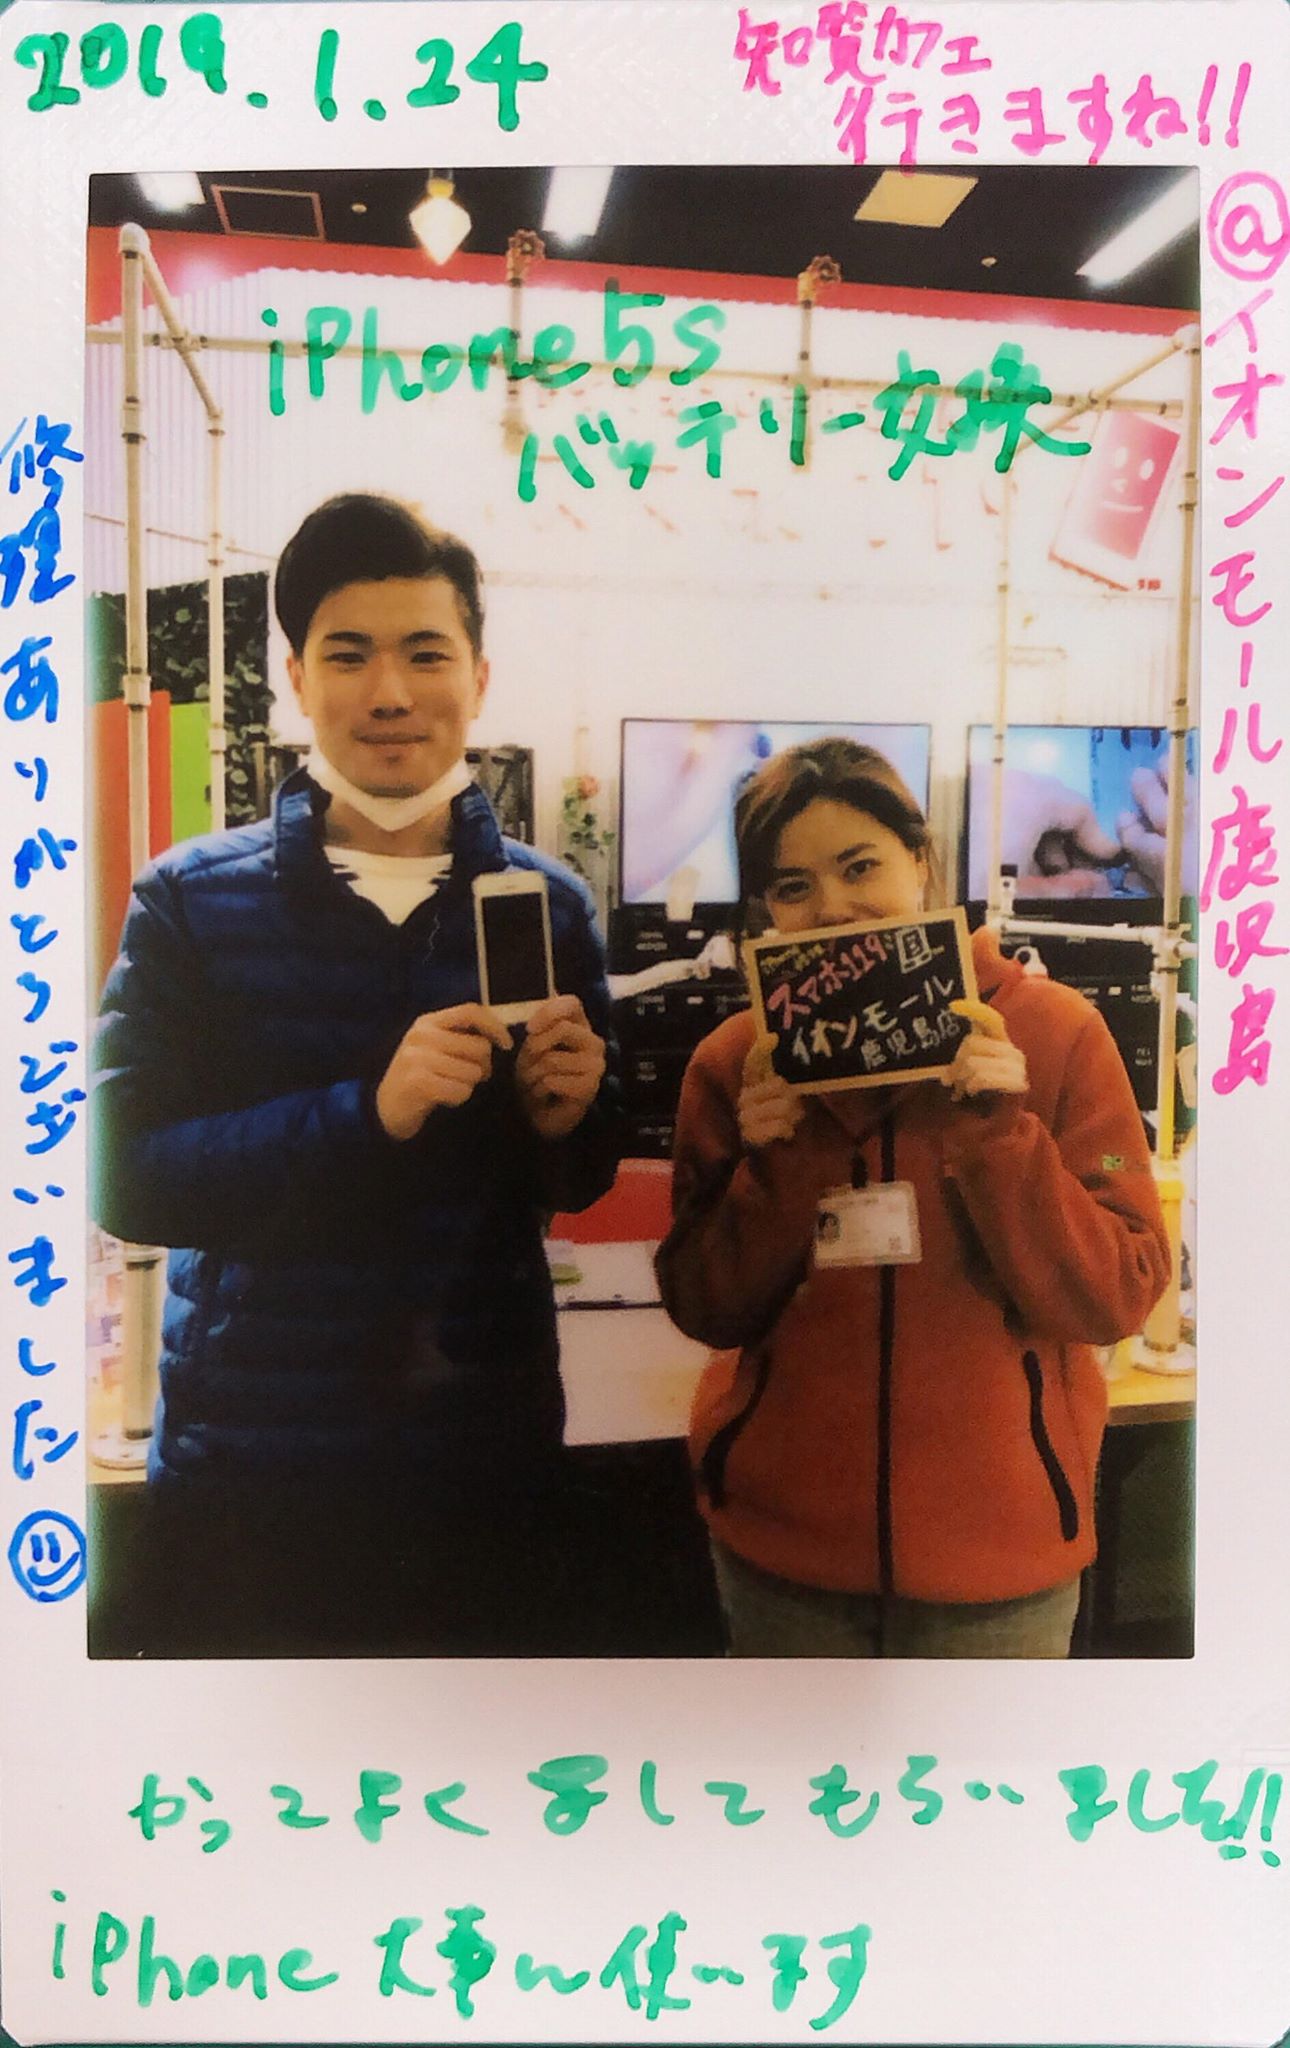 2019.1.24
知覧カフェ
行きますね!!
@イオンモール鹿児島
iPhone5s
バッテリー交換
修理ありがとうございました
スマホ119
イオンモール
鹿児島店
かっこよく写してもらいました!!
iPhone 大事に使います